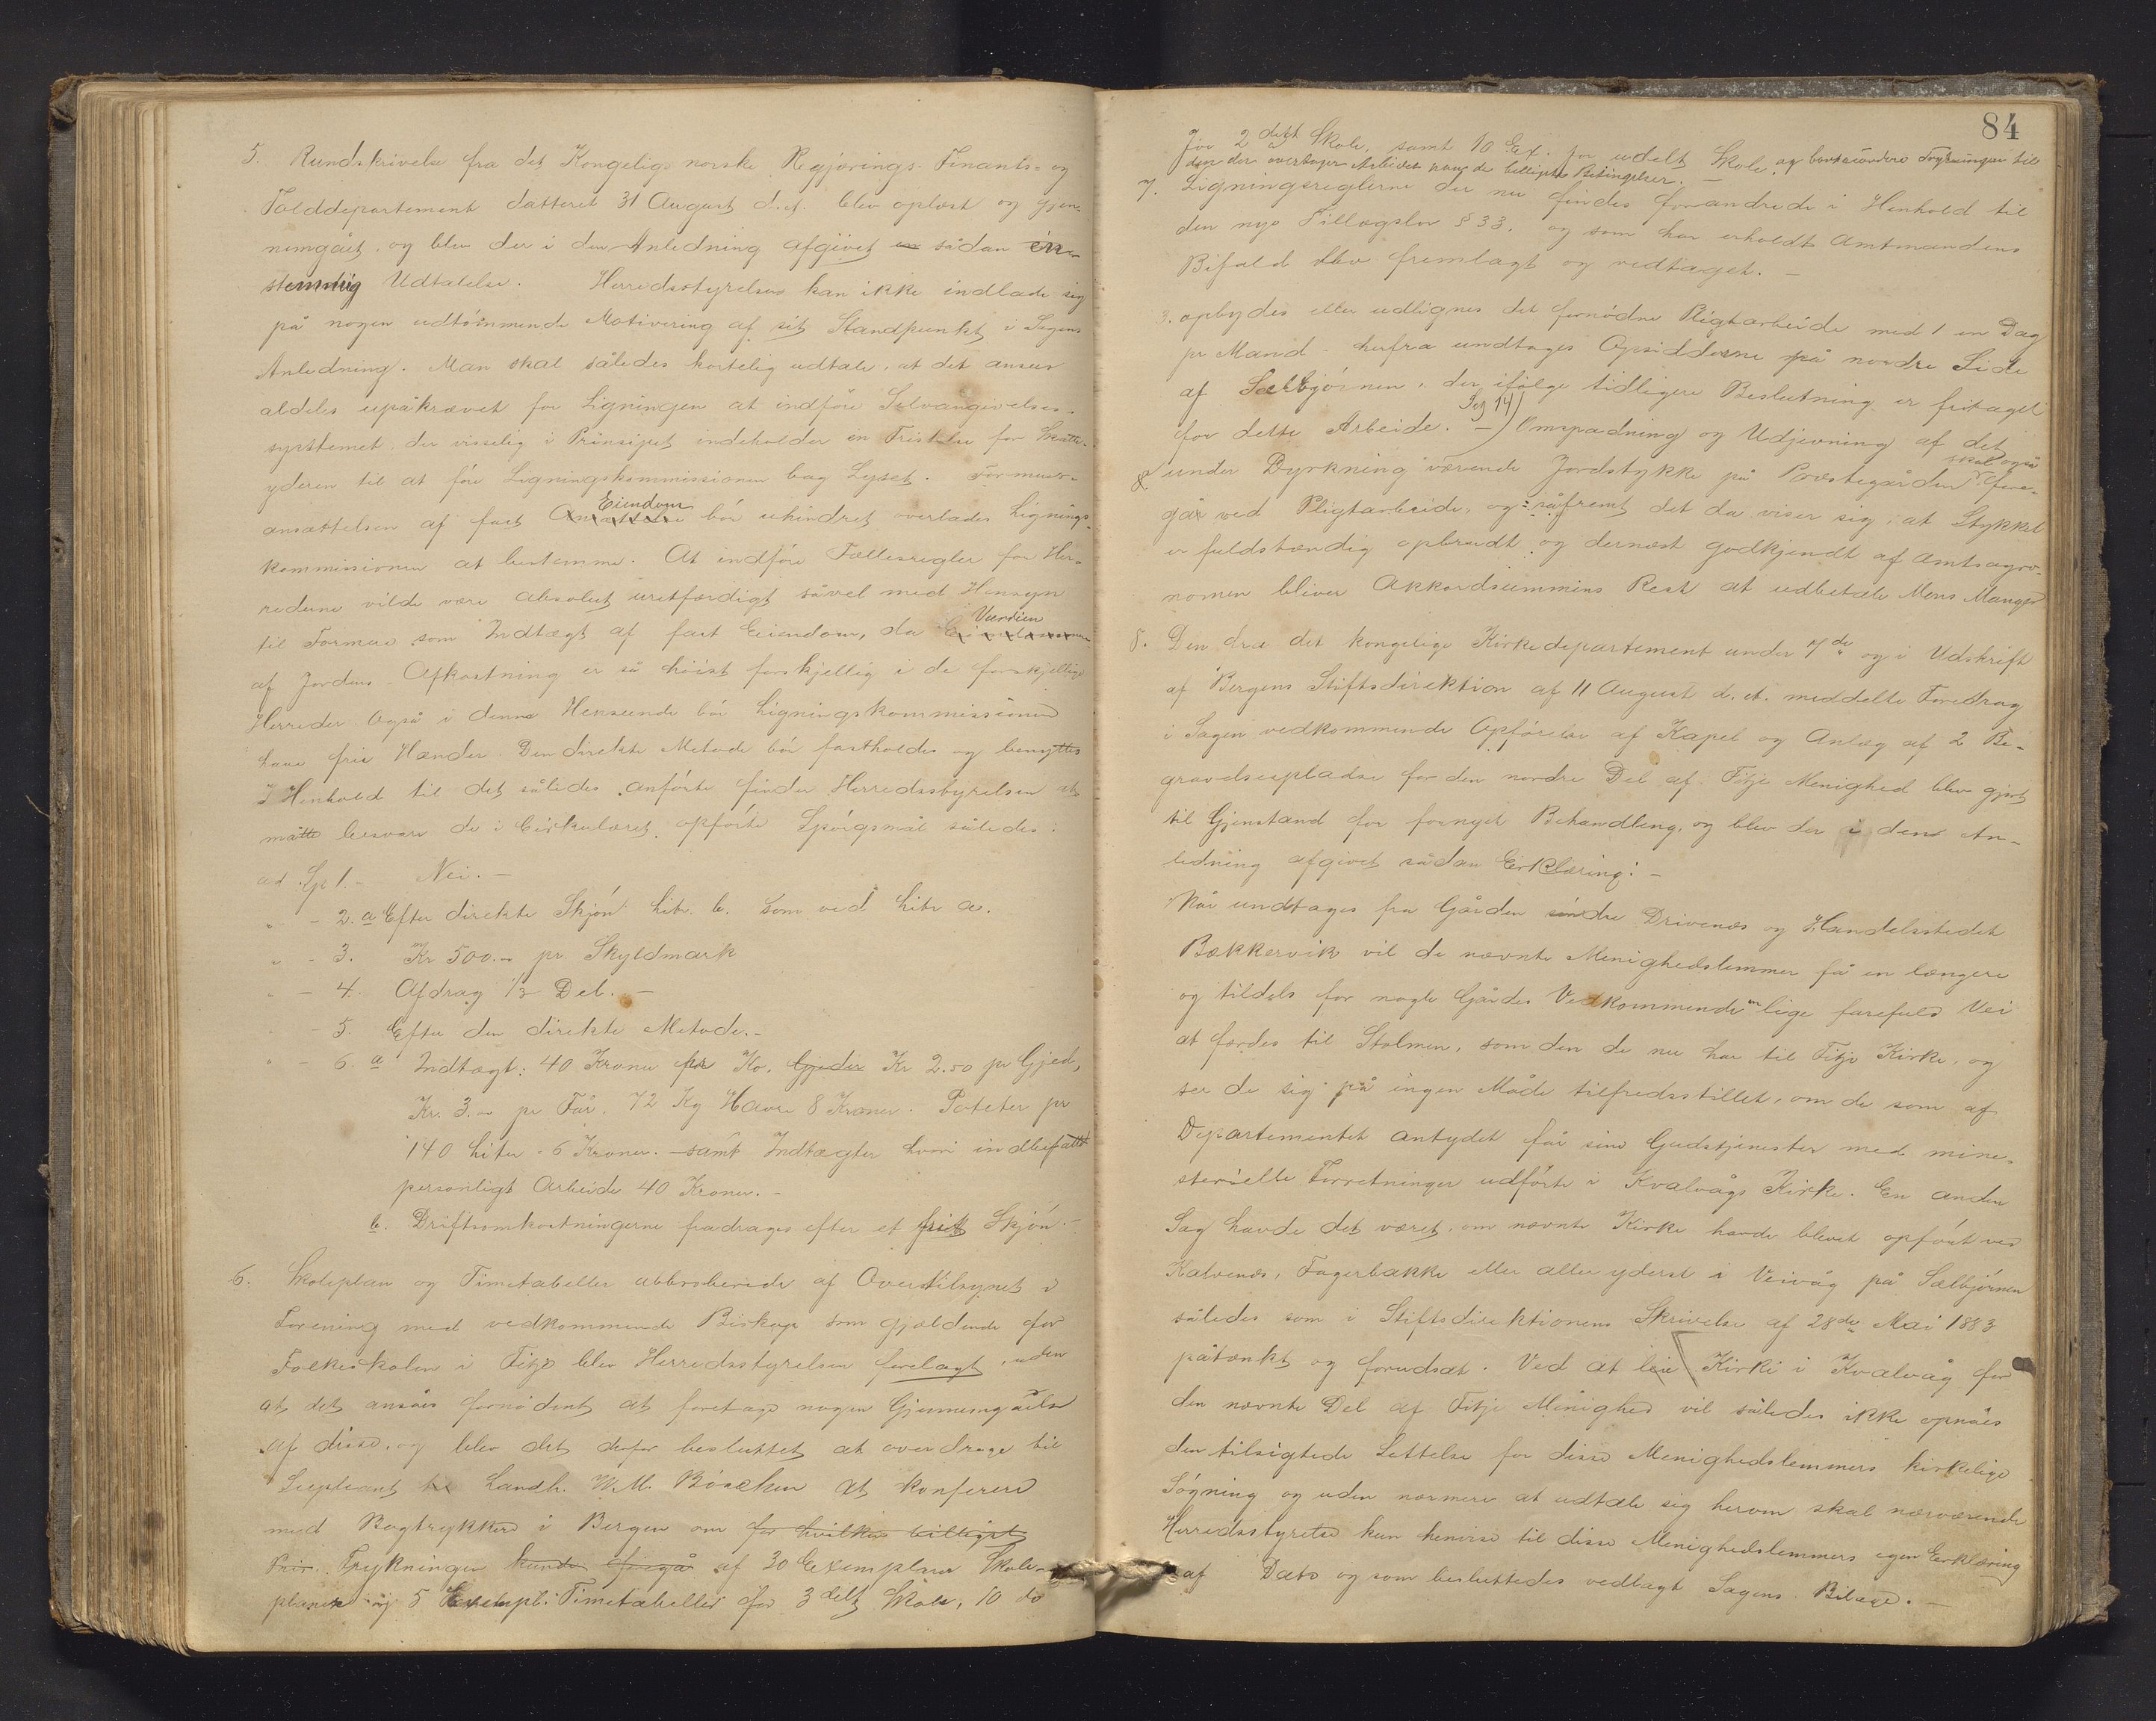 5. Rundskrivelse fra det Kongelige norske Regjerings Finants- og
Tolddepartement datteret 31 August d. A. blev oplæst og gjen-
nemgået, og blev der i den Anledning afgivet en sådan en-
stemmig Udtalelse. Herredsstyrelsen kan ikke indlade sig
på nogen udtømmende Motivering af sit Standpunkt i Sagens
Anledning. Man skal således kortelig udtale, at det ansees
aldeles upåkrævet for Ligningen at indføre Selvangivelses-
systemet, der visselig i Prinsipet indeholder en Fristelse for Skatte-
yderen til at føre Ligningskommissionen bag Lyset. Formues-
ansættelsen af fast Ansættelse Eiendom bør uhindret overlades Lignings-
kommissionen at bestemme. At indføre Fællesregler for Her-
rederne vilde være absolut uretfærdigt såvel med Hensyn
til Formue som Indtægt af fast Eiendom, da Eiendommen Værdien
af Jordens Afkastning er så høist forskjellig i de forskjellige
Herreder. Også i denne Henseende bør Ligningskommissionen
have frie Hænder. Den direkte Metode bør fastholdes og benyttes
I Henhold til det således anførte finder Herredsstyrelsen at
måtte besvare de i Cirkulæret opførte Spørgsmål således:
ad Sp 1. - Nei. -
" - 2. a Efter direkte Skjøn Litr. b. som ved Litr a.
" - 3. Kr 500.- pr. Skyldmark
" - 4. Afdrag 1/3 Del. -
" - 5. Efter den direkte Metode. -
" - 6. a Indtægt: 40 Kroner pr Ko. Gjeder Kr 2.50 pr Gjed,
Kr. 3.00 pr Får. 72 Kg Havre 8 Kroner. Poteter pr
140 Liter - 6 Kroner. - samt Indtægter hvori indbefattet
personligt Arbeide 40 Kroner. -
b. Driftsomkostningerne fradrages efter et frit Skjøn. -
6. Skoleplan og Timetabeller abbroberede af Overtilsynet i
Forening med vedkommende Biskop som gjældende for
Folkeskolen i Fitje blev Herredsstyrelsen forelagt, uden
at det ansåes fornødent at foretage nogen Gjennemgåelse
af disse, og blev det derfor besluttet at overdrage til
Supleant til Landh. W. M. Bøschen at konferere
med Bogtrykkere i Bergen om for hvilken billigst
Pris. Trykningen kunde foregå af 30 Exemplarer Skole-
planer og 5 Exempl. Timetabeller for 3 delt Skole, 10 do
84
for 2 delt Skole, samt 10 Ex. for udelt Skole, og bortakordere Trykningen til
den der overtager Arbeidet paa de billigste Betingelser. -
7. Ligningsreglerne der nu findes forandrede i Henhold til
den nye Tillægslov § 33, og som har erholdt Amtmandens
Bifald blev fremlagt og vedtaget. -
3. opbydes eller udlignes det fornødne Pligtarbeide med 1 en Dag
pr Mand - herfra undtages Opsidderne på nordre Side
af Sælbjørnen, der ifølge tidligere Beslutning er fritaget
for dette Arbeide. - Seg 14) Omspadning og Udjevning af det
under Dyrkning værende Jordstykke på Præstegården skal også fore-
gå ved Pligtarbeide, og såfremt det da viser sig, at Stykket
er fuldstændig opbrudt og dernæst godkjendt af Amtsagro-
nomen bliver Akkordsummens Rest at udbetale Mons Manger
8. Den fra det kongelige Kirkedepartement under 7de og i Udskrift
af Bergens Stiftsdirektion af 11 August d. A. meddelte Foredrag
i Sagen vedkommende Opførelse af Kapel og Anlæg af 2 Be-
gravelsespladse for den nordre Del af Fitje Menighed blev gjort
til Gjenstand for fornyet Behandling, og blev der i den An-
ledning afgivet sådan Erklæring: -
Når undtages fra Gården søndre Drivenæs og Handelsstedet
Bækkervik vil de nævnte Menighedslemmer få en længere
og tildels for nogle Gårdes Vedkommende en lige farefuld Vei
at færdes til Stolmen, som den de nu har til Fitje Kirke, og
ser de sig på ingen Måde tilfredsstillet, om de som af
Departementet antydet får sine Gudstjenester med mini-
sterielle Forretninger udførte i Kvalvågs Kirke. En anden
Sag havde det været, om nævnte Kirke havde blevet opført ved
Kalvenæs, Fagerbakke eller aller yderst i Veivåg på Sælbjørnen
således som i Stiftsdirektionens Skrivelse af 28de Mai 1883
påtænkt og forudsat. Ved at leie Kirke i Kvalvåg for
den nævnte Del af Fitje Menighed vil således ikke opnåes
den tilsigtede Lettelse for disse Menighedslemmers kirkelige
Søgning og uden nærmere at udtale sig herom skal nærværende
Herredsstyrelse kun henvise til disse Menighedslemmers egen Erklæring
af Dato og som besluttedes vedlagt Sagens Bilage. -